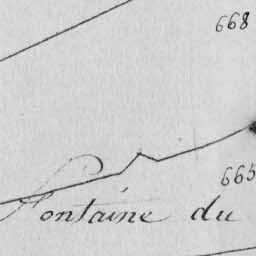 668
665
Fontaine du